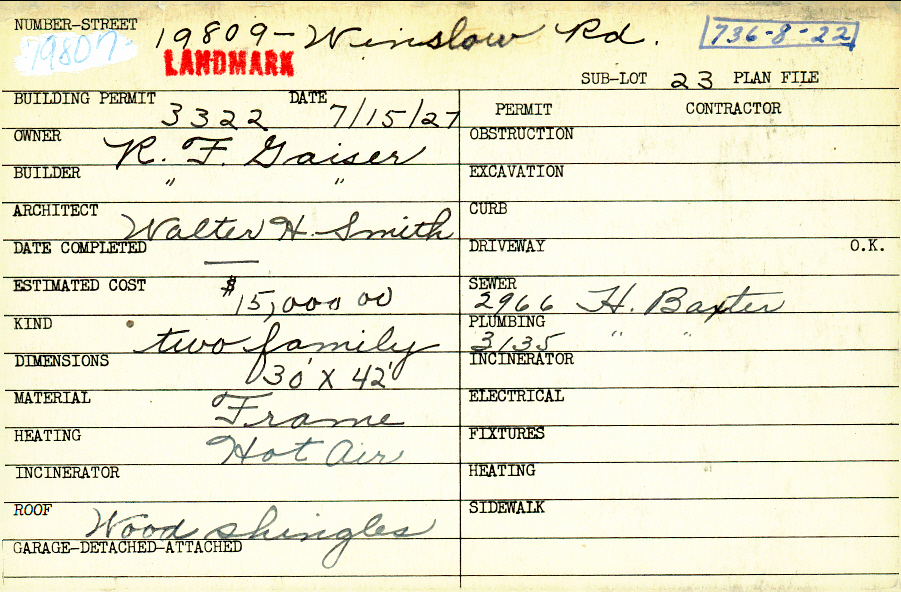 NUMBER-STREET 19809- Winslow Rd. 736-8-22
19807-
LANDMARK
SUB-LOT 23 PLAN FILE
BUILDING PERMIT 3322 DATE 7/15/27
PERMIT CONTRACTOR
OWNER R. F. Gaiser
OBSTRUCTION
BUILDER " "
EXCAVATION
ARCHITECT Walter H. Smith
CURB
DATE COMPLETED —
DRIVEWAY O.K.
ESTIMATED COST $15,000 00
SEWER 2966 H. Baxter
KIND two family
PLUMBING 3135 " "
DIMENSIONS 30' X 42'
INCINERATOR
MATERIAL Frame
ELECTRICAL
HEATING Hot Air
FIXTURES
INCINERATOR
HEATING
ROOF Wood shingles
SIDEWALK
GARAGE-DETACHED-ATTACHED